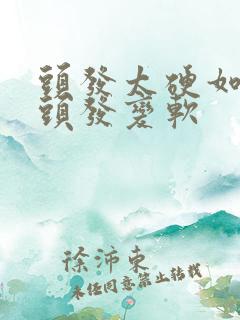 頭發太硬如
頭發變軟
徐沛東
未經同意禁止轉載